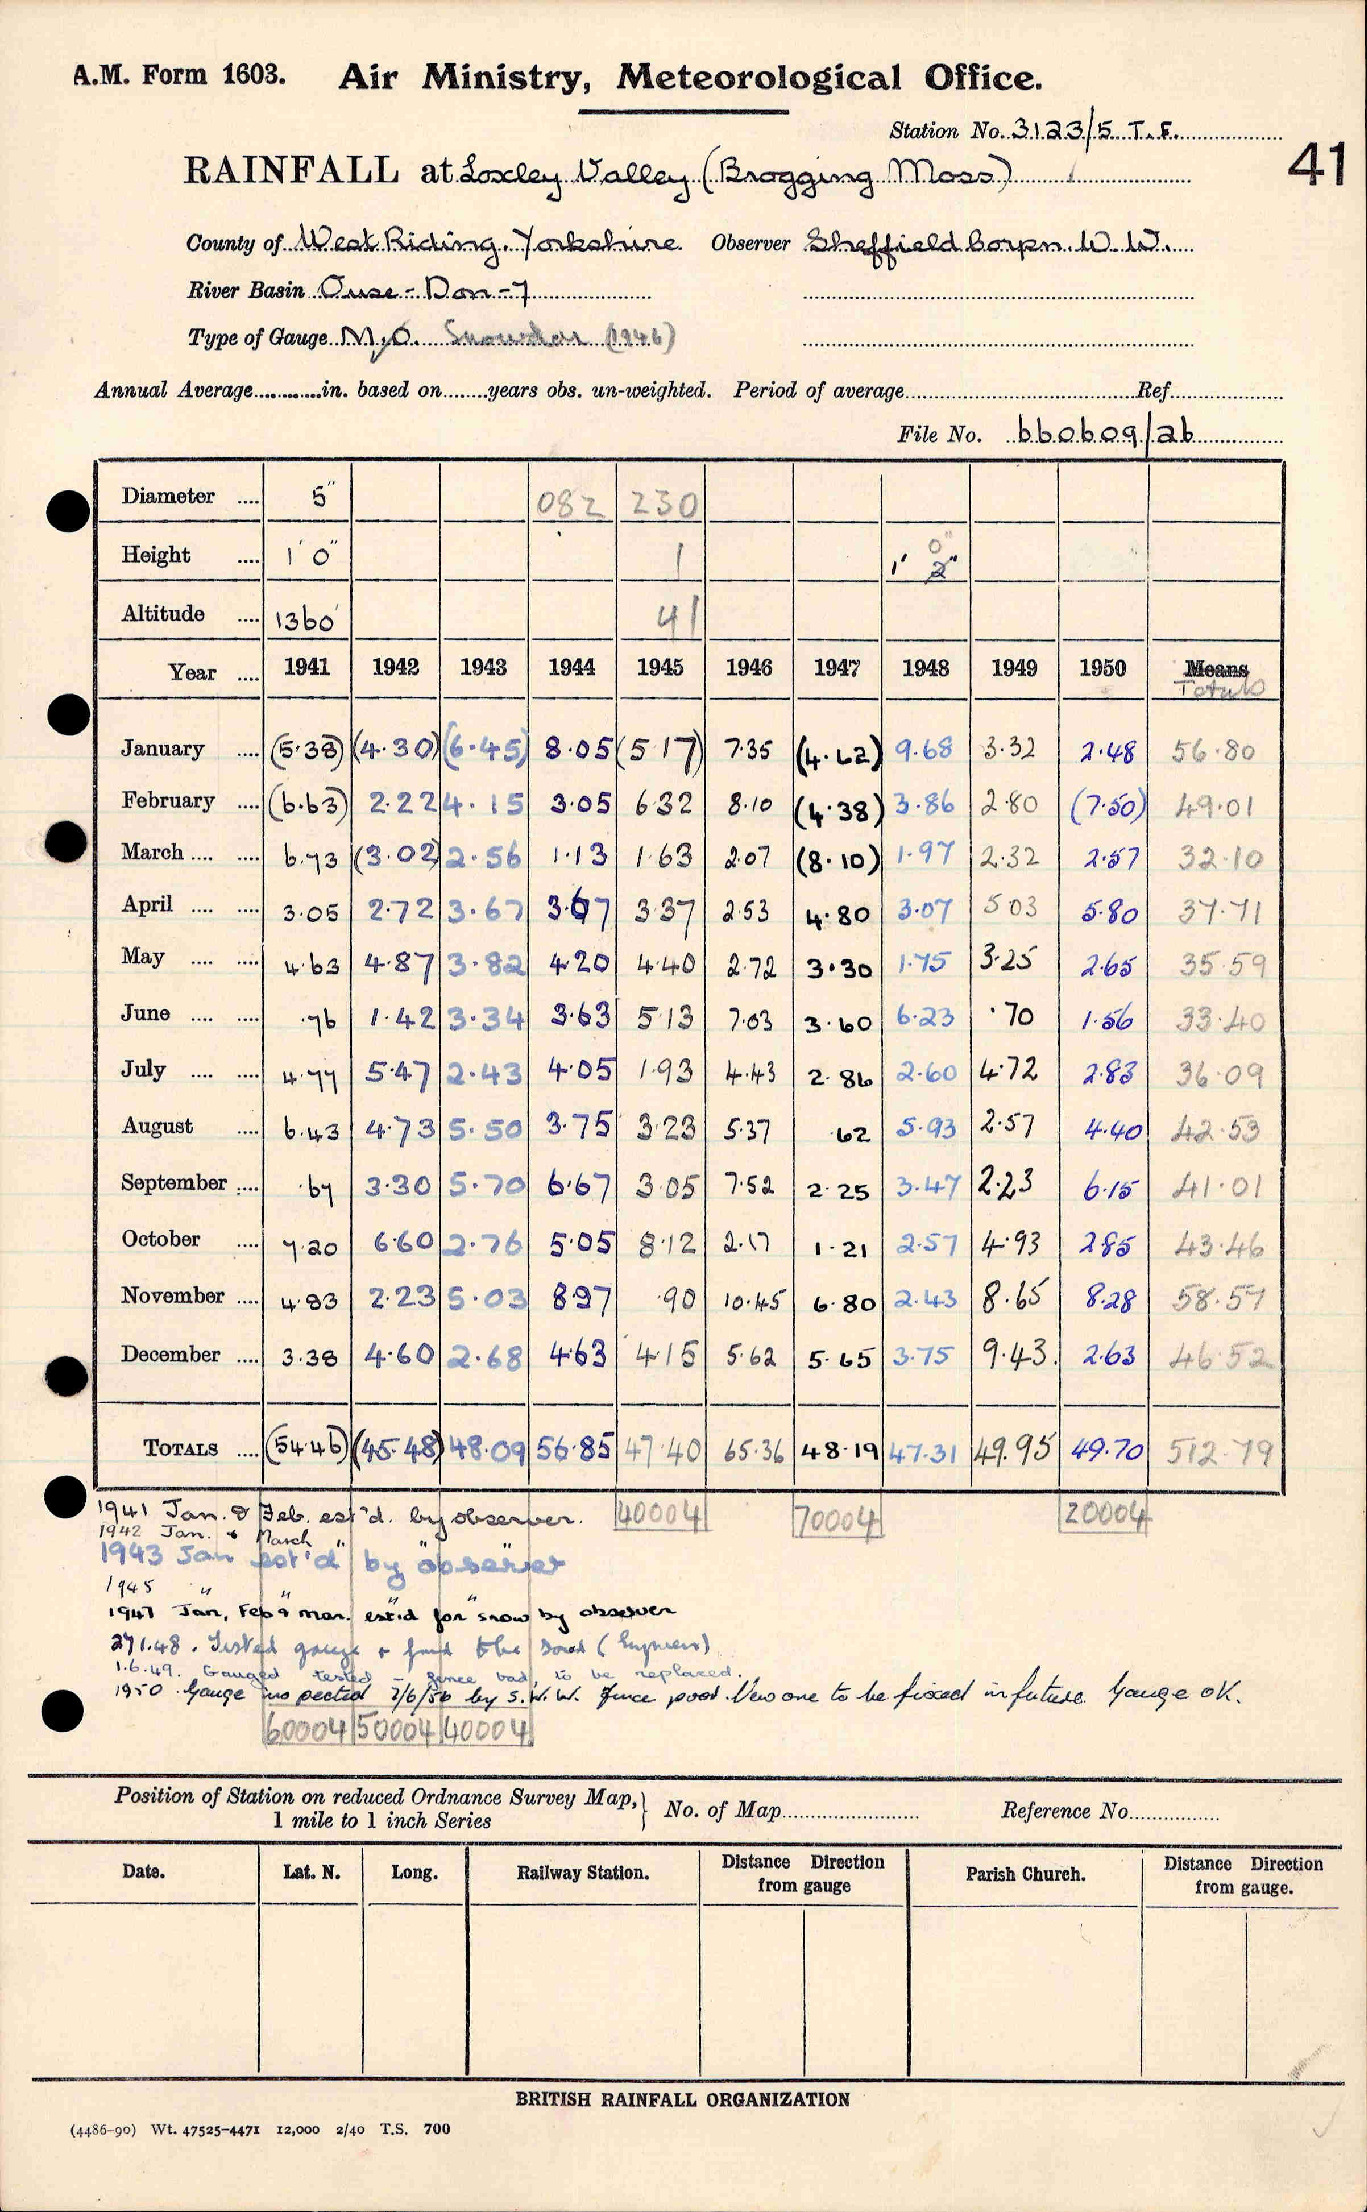 A.M. Form 1603. Air Ministry, Meteorological Office.
Station No. 3123/5 T.F.
41
RAINFALL at Loxley Valley (Brogging Moss)
County of West Riding, Yorkshire Observer Sheffield Corpn. W.W.
River Basin Ouse - Don - 7
Type of Gauge M.O. Snowdon (1946)
Annual Average in. based on years obs. un-weighted. Period of average Ref.
File No. 660609/26
Diameter .... 5" 082 230
Height .... 1' 0" 1 1' 2" 0"
Altitude .... 1360' 41
Year .... 1941 1942 1943 1944 1945 1946 1947 1948 1949 1950 Means Totals
January .... (5.38) (4.30) (6.45) 8.05 (5.17) 7.35 (4.62) 9.68 3.32 2.48 56.80
February .... (6.63) 2.22 4.15 3.05 6.32 8.10 (4.38) 3.86 2.80 (7.50) 49.01
March .... .... 6.73 (3.02) 2.56 1.13 1.63 2.07 (8.10) 1.97 2.32 2.57 32.10
April .... .... 3.05 2.72 3.67 3.67 3.37 2.53 4.80 3.07 5.03 5.80 37.71
May .... .... 4.63 4.87 3.82 4.20 4.40 2.72 3.30 1.75 3.25 2.65 35.59
June .... .... .76 1.42 3.34 3.63 5.13 7.03 3.60 6.23 .70 1.56 33.40
July .... .... 4.77 5.47 2.43 4.05 1.93 4.43 2.86 2.60 4.72 2.83 36.09
August .... 6.43 4.73 5.50 3.75 3.23 5.37 .62 5.93 2.57 4.40 42.53
September .... .67 3.30 5.70 6.67 3.05 7.52 2.25 3.47 2.23 6.15 41.01
October .... 7.20 6.60 2.76 5.05 8.12 2.17 1.21 2.57 4.93 2.85 43.46
November .... 4.83 2.23 5.03 8.97 .90 10.45 6.80 2.43 8.65 8.28 58.57
December .... 3.38 4.60 2.68 4.63 4.15 5.62 5.65 3.75 9.43 2.63 46.52
TOTALS .... (54.46) (45.48) 48.09 56.85 47.40 65.36 48.19 47.31 49.95 49.70 512.79
40004 70004 20004
1941 Jan. & Feb. est'd. by observer.
1942 Jan. & March " " "
1943 Jan est'd by observer
1945 " " " "
1947 Jan, Feb & Mar. est'd for snow by observer
27.1.48. Tested gauge & found to be sound (Engineers)
1.6.49. Gauged tested - fence bad, to be replaced.
1950 Gauge inspected 7/6/50 by S.W.W. Fence poor. New one to be fixed in future. Gauge OK.
60004 50004 40004
Position of Station on reduced Ordnance Survey Map, 1 mile to 1 inch Series } No. of Map Reference No.
Date. Lat. N. Long. Railway Station. Distance Direction from gauge Parish Church. Distance Direction from gauge.
BRITISH RAINFALL ORGANIZATION
(4486-90) Wt. 47525-4471 12,000 2/40 T.S. 700